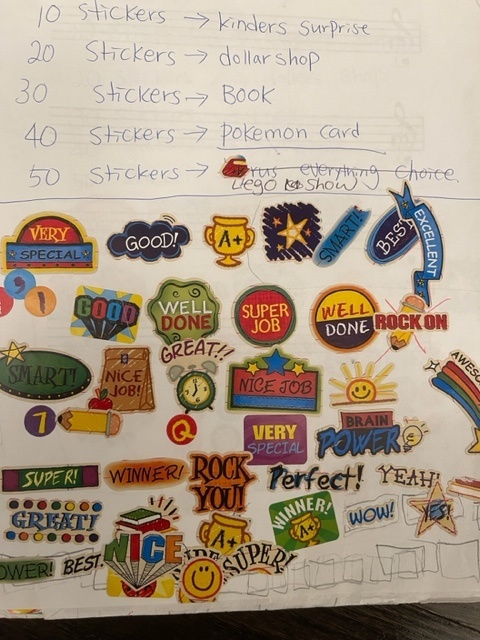 10 Stickers → kinders surprise
20 Stickers → dollarshop
30 Stickers → Book
40 Stickers → pokemon card
50 Stickers → everything choice
Liego show
VERY SPECIAL
GOOD!
A+
SMART!
BEST
EXCELLENT
9
1
GOOD
WELL DONE
SUPER JOB
WELL DONE
ROCK ON
GREAT!!
SMART!
NICE JOB!
NICE JOB
AWESO
7
Q
VERY SPECIAL
BRAIN POWER
SUPER!
WINNER!
ROCK YOU!
Perfect!
YEAH!
GREAT!
NICE
A+
WINNER!
A+
WOW!
YES!
OWER!
BEST.
SUPER!